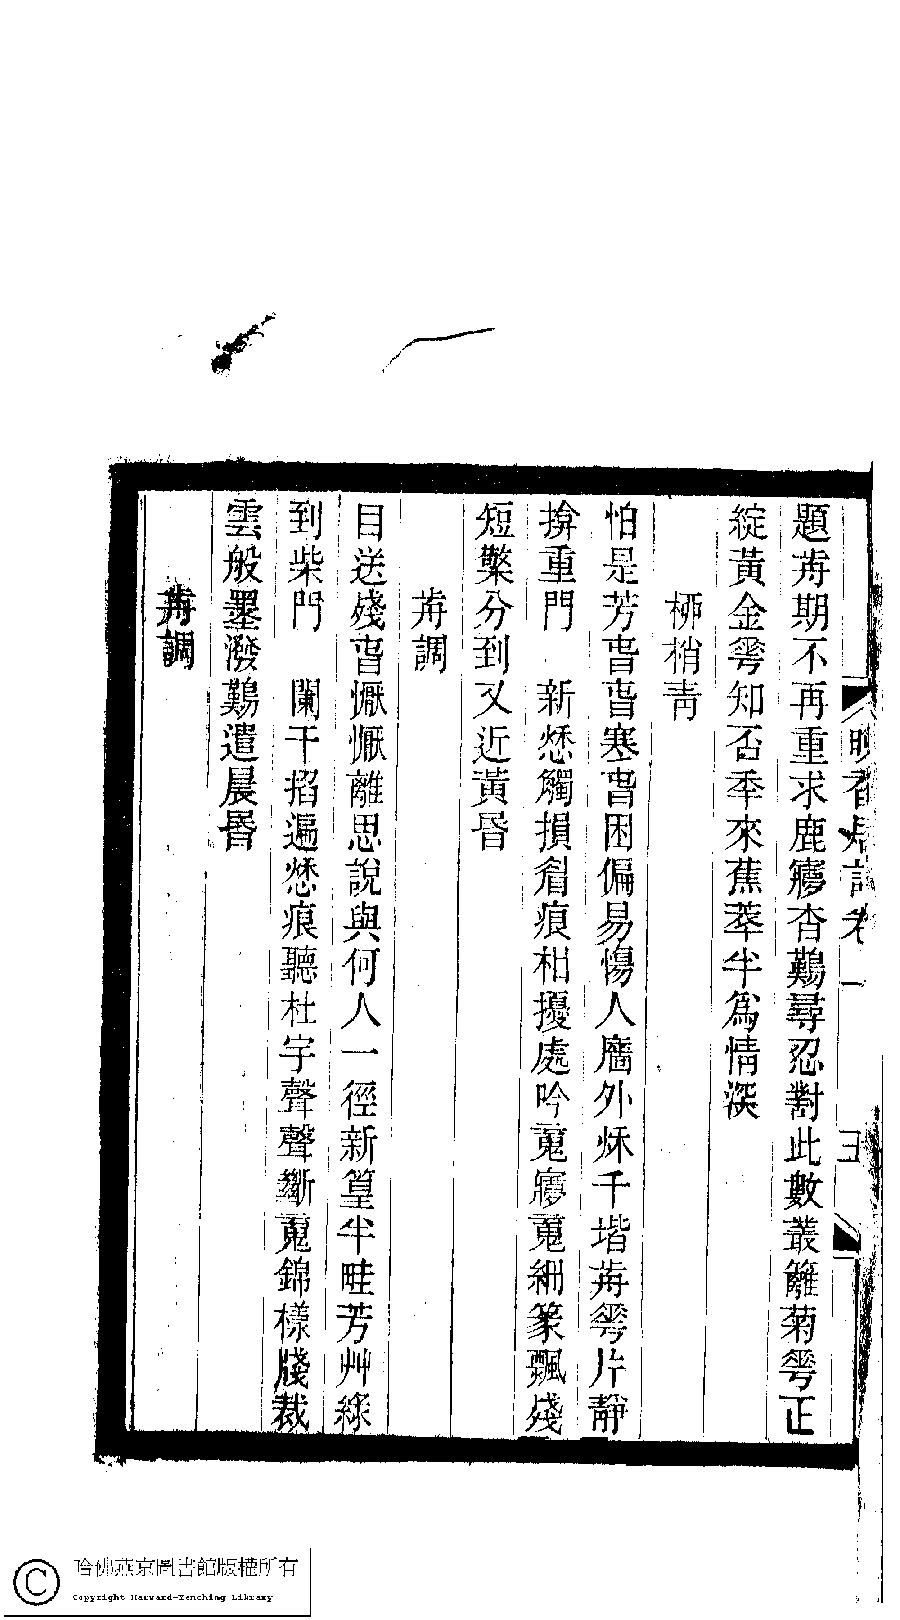 晚香居詞卷一
題歬期不再重求鹿㝱杳難尋忍對此數叢籬菊花正
綻黃金花知否秊來蕉萃半爲情深
桺梢青
怕是芳旾旾寒旾困偏易傷人牆外秋千堦歬花片靜
揜重門　新愁觸損睂痕相擾處吟䰟㝱䰟細篆飄殘
短檠分到又近黃昬
歬調
目送殘旾懨懨離思說與何人一徑新篁半畦芳艸綠
到柴門　闌干掐遍愁痕聽杜宇聲聲斷䰟錦樣牋裁
雲般墨潑難遣晨昬
歬調
哈佛燕京圖書館版權所有
Copyright Harvard-Yenching Library